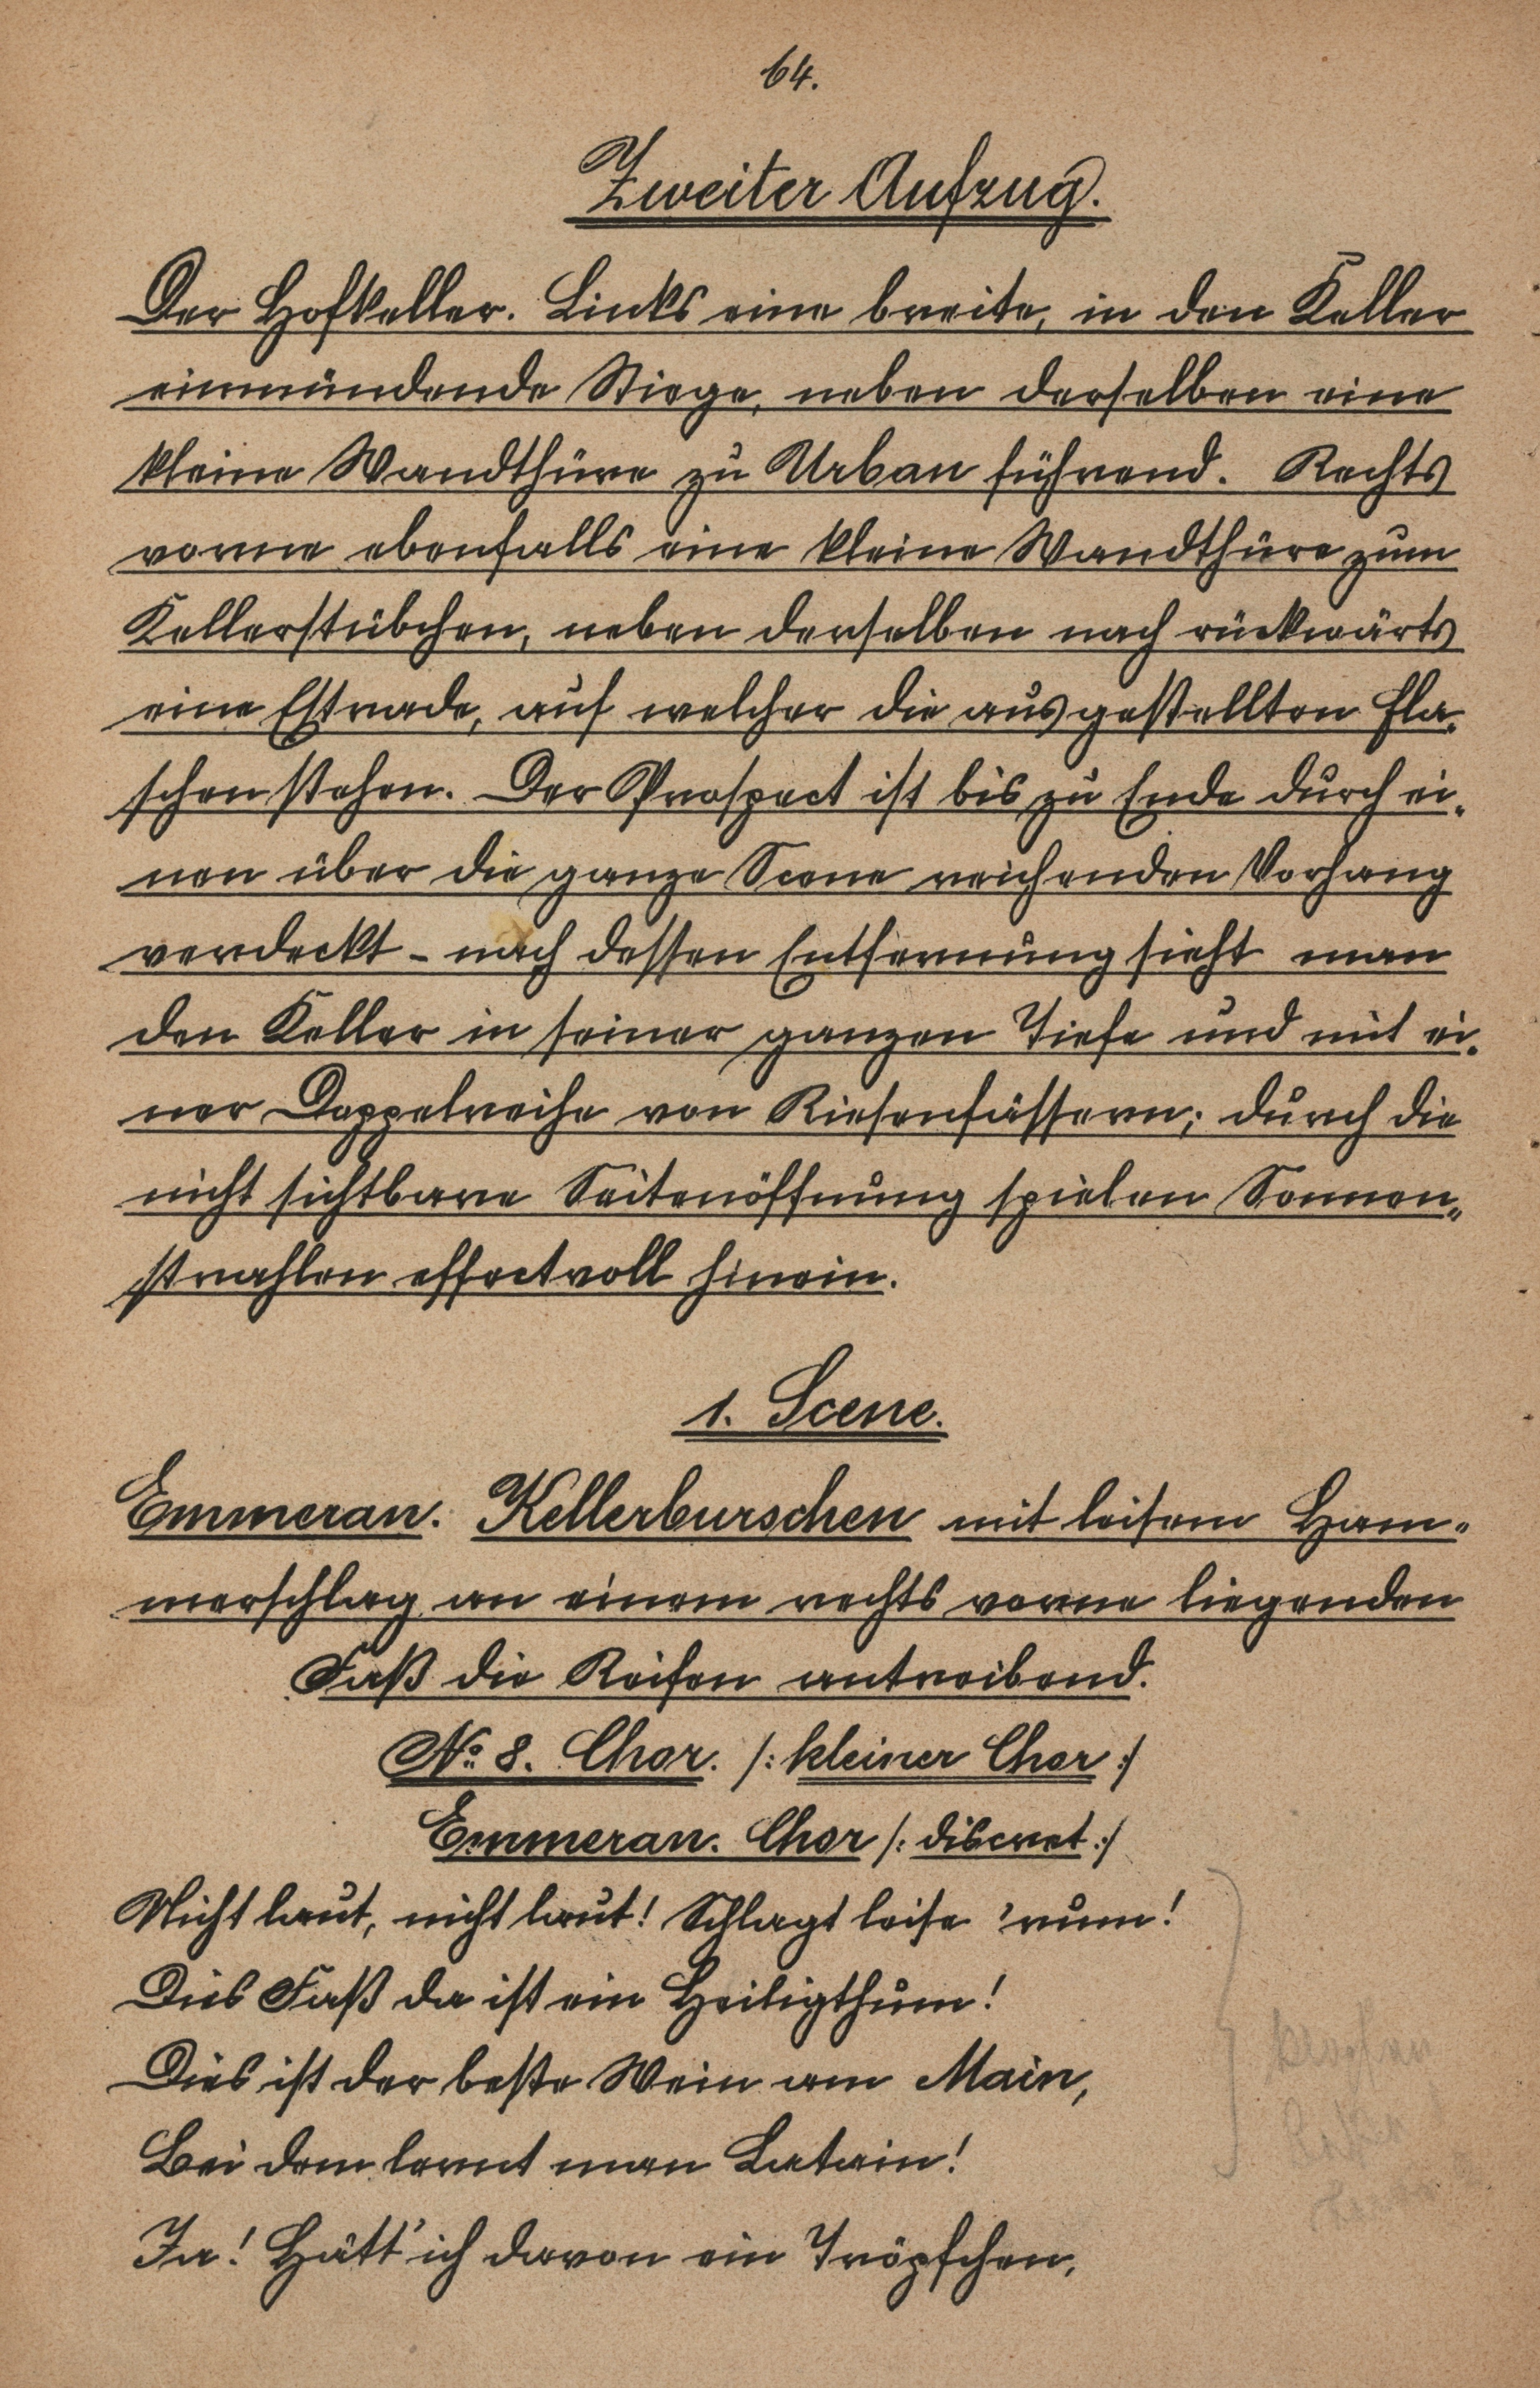 64.
Zweiter Aufzug.
Der Hofkeller. Links eine breite, in den Keller
einmündende Stiege, neben derselben eine
kleine Wandthüre zu Urban führend. Rechts
vorne ebenfalls eine kleine Wandthüre zum
Kellerstübchen, neben derselben nach rückwärts
eine Estrade, auf welcher die ausgestellten Fla-
schen stehen. Der Prospect ist bis zu Ende durch ei-
nen über die ganze Scene reichenden Vorhang
verdeckt - nach dessen Entfernung sieht man
den Keller in seiner ganzen Tiefe und mit ei-
ner Doppelreihe von Riesenfässern; durch die
nicht sichtbare Seitenöffnung spielen Sonnen-
strahlen effectvoll hinein.
1. Scene.
Emmeran. Kellerburschen mit leisem Ham-
merschlag an einem rechts vorne liegenden
Faß die Reifen antreibend.
No 8. Chor. /: kleiner Chor :/
Emmeran. Chor /: discret :/
Nicht laut, nicht laut! Schlagt leise 'rum!
Dies Faß da ist ein Heiligthum!
Dies ist der beste Wein am Main,
Bei dem lernt man Latein!
Ja! Hätt' ich davon ein Tröpfchen,